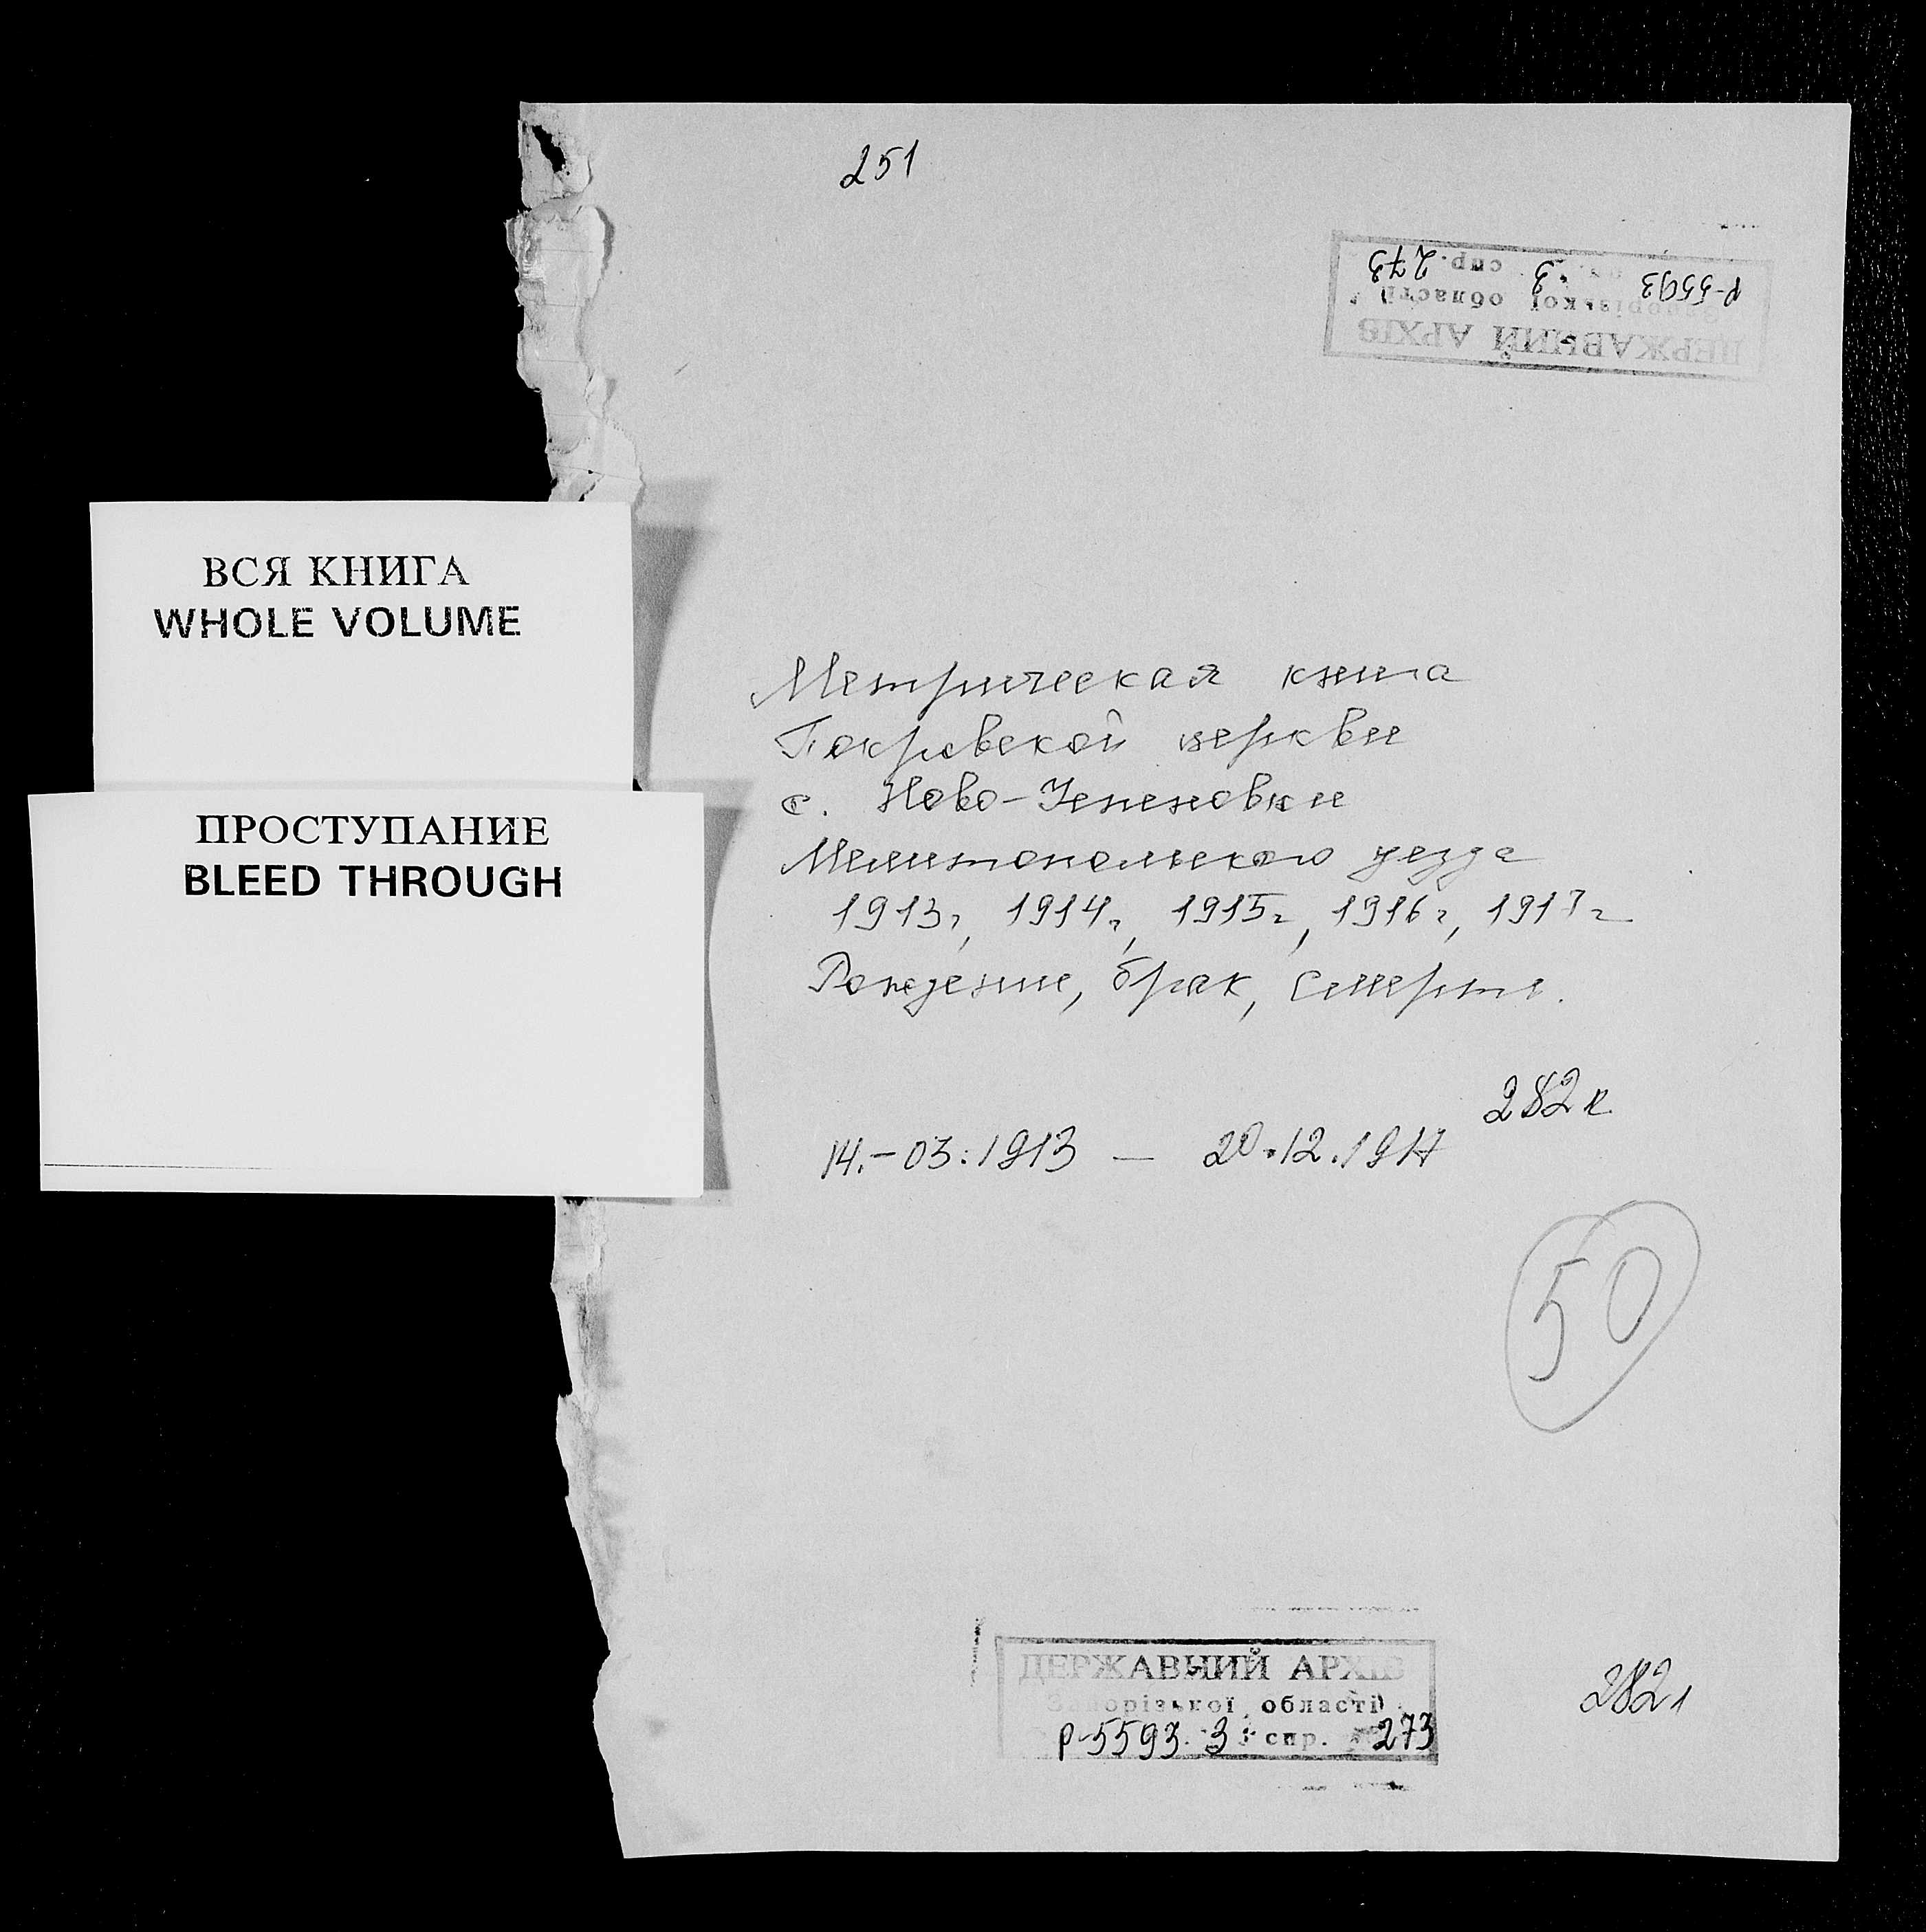 251
ДЕРЖАВНИЙ АРХІВ
Запорізької області
Р-5593 3 спр. 273
ВСЯ КНИГА
WHOLE VOLUME
ПРОСТУПАНИЕ
BLEED THROUGH
Метрическая книга
Покровской церкви
с. Ново-Успеновки
Мелитопольского уезда
1913г, 1914г, 1915г, 1916г, 1917г
Рождение, брак, смерть.
282л
14.-03.1913 — 20.12.1917
50
ДЕРЖАВНИЙ АРХІВ
Запорізької області
Р-5593. 3 спр. 273
282л